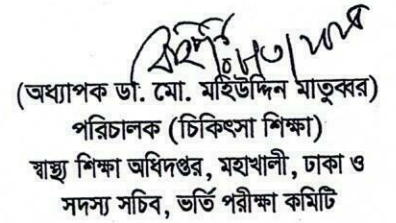 (অধ্যাপক ডা. মো. মহিউদ্দিন মাতুব্বর)
পরিচালক (চিকিৎসা শিক্ষা)
স্বাস্থ্য শিক্ষা অধিদপ্তর, মহাখালী, ঢাকা ও
সদস্য সচিব, ভর্তি পরীক্ষা কমিটি